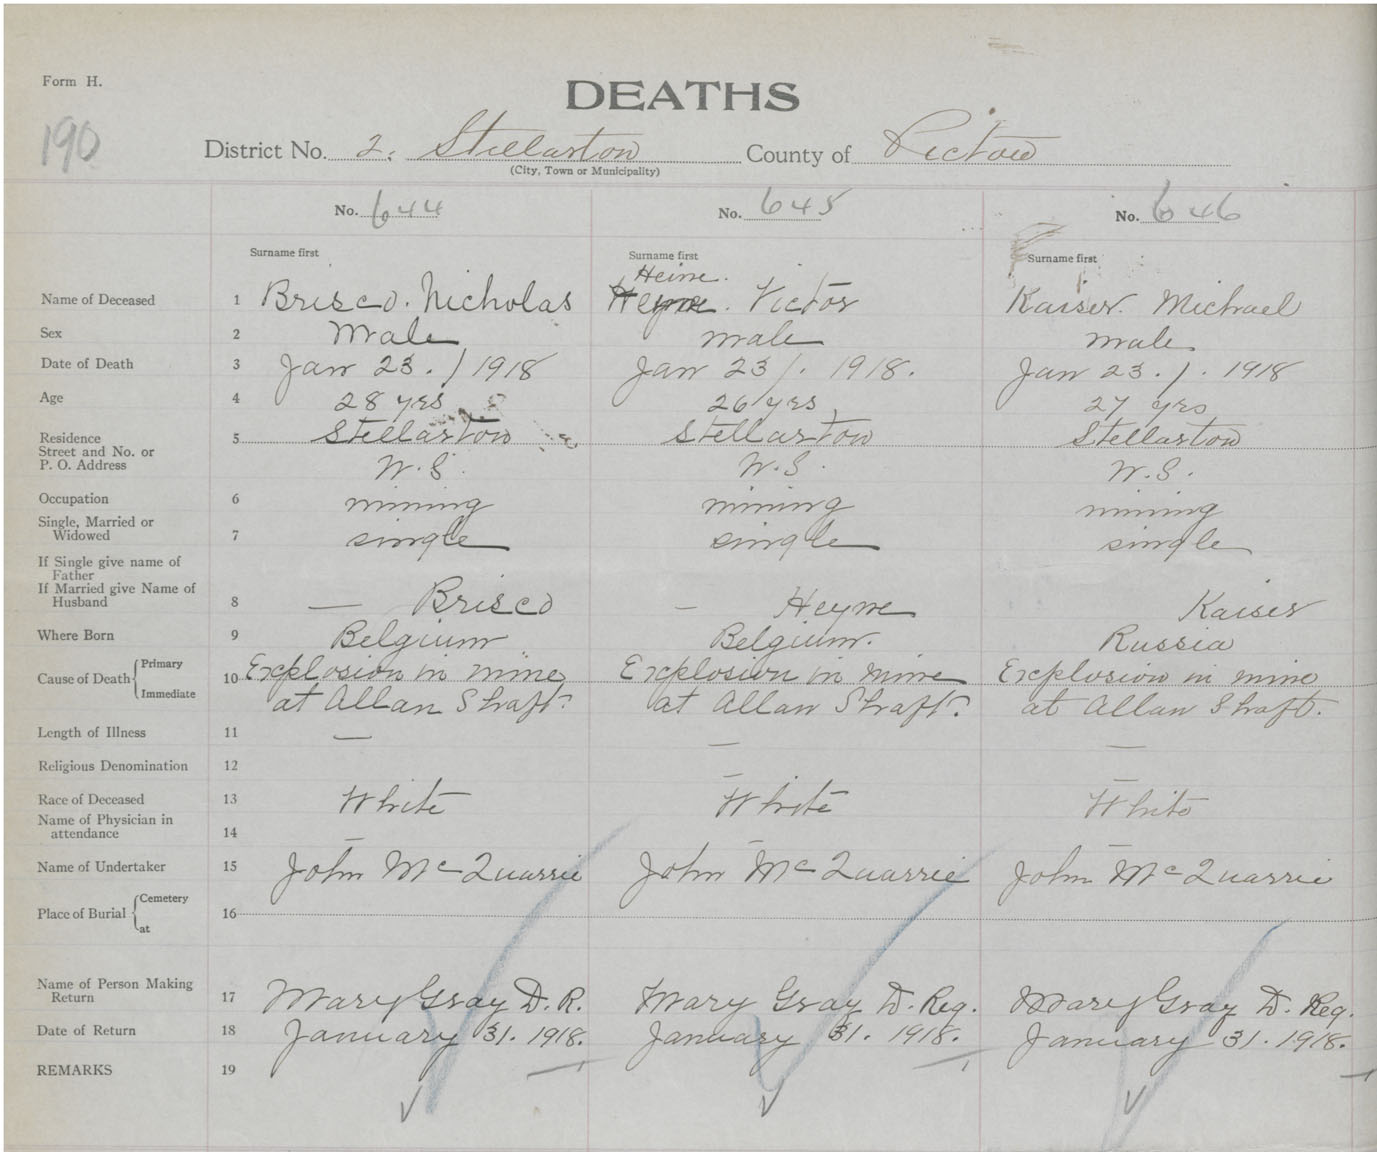 Form H.
DEATHS
190
District No. 2. Stellarton County of Pictou
(City, Town or Municipality)
No. 644 No. 645 No. 646
Surname first Surname first Surname first
Heine.
Name of Deceased 1 Brisco. Nicholas Heyne. Victor Kaiser. Michael
Sex 2 Male male male
Date of Death 3 Jan 23. / 1918 Jan 23 /. 1918. Jan 23. /. 1918
Age 4 28 yrs 26 yrs 27 yrs
Residence 5 Stellarton Stellarton Stellarton
Street and No. or
P. O. Address N.S. N.S. N.S.
Occupation 6 mining mining mining
Single, Married or
Widowed 7 single single single
If Single give name of
Father
If Married give Name of
Husband 8 — Brisco — Heyne Kaiser
Where Born 9 Belgium Belgium. Russia
Cause of Death { Primary 10 Explosion in mine Explosion in mine Explosion in mine
Immediate at Allan Shaft. at Allan Shaft. at Allan Shaft.
Length of Illness 11 — — —
Religious Denomination 12 — —
Race of Deceased 13 White White White
Name of Physician in
attendance 14 — — —
Name of Undertaker 15 John McQuarrie John McQuarrie John McQuarrie
Place of Burial { Cemetery 16
at
Name of Person Making
Return 17 Mary Gray D. R. Mary Gray D. Reg. Mary Gray D. Reg.
Date of Return 18 January 31. 1918. January 31. 1918. January 31. 1918.
REMARKS 19 — — —